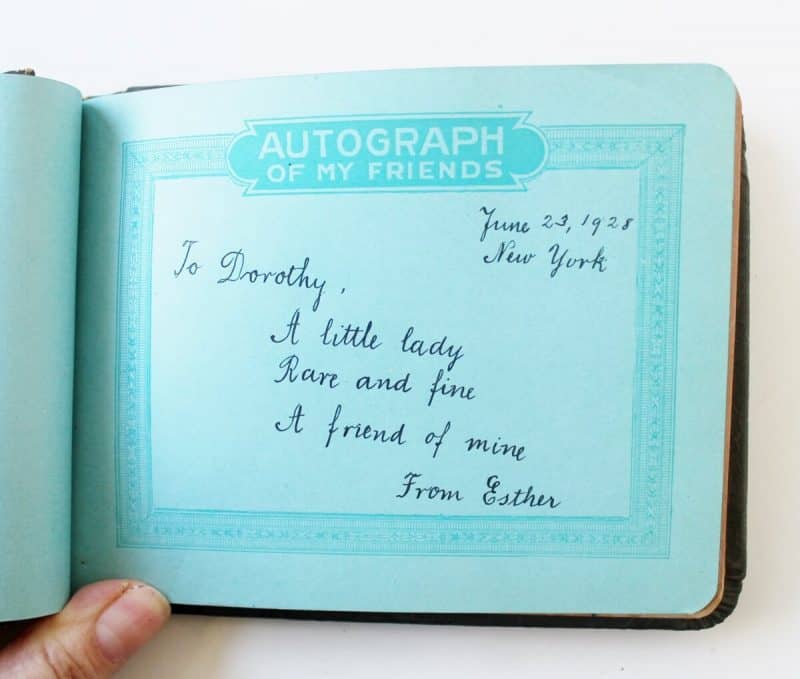 AUTOGRAPH
OF MY FRIENDS
June 23, 1928
New York
To Dorothy,
A little lady
Rare and fine
A friend of mine
From Esther